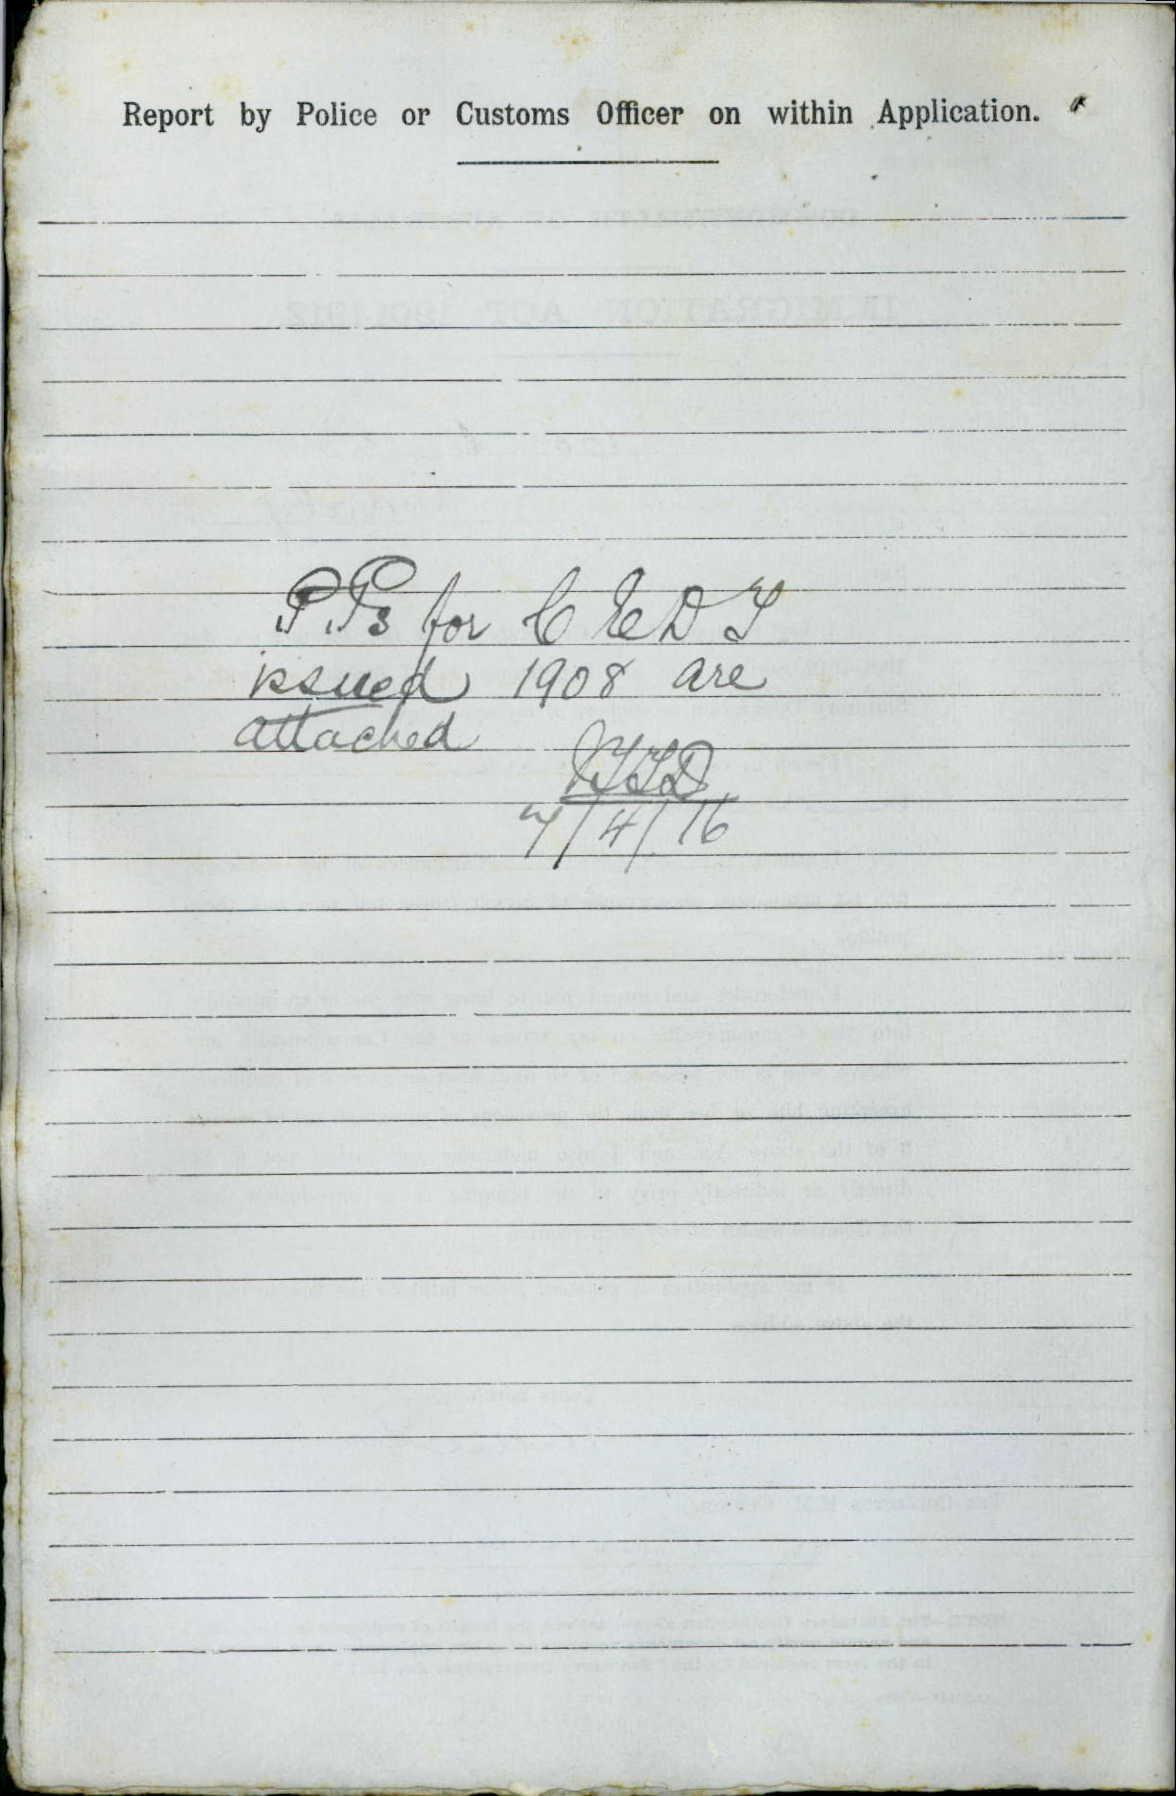 Report by Police or Customs Officer on within Application.
P.Ps for C E D T
issued 1908 are
attached
7/4/16